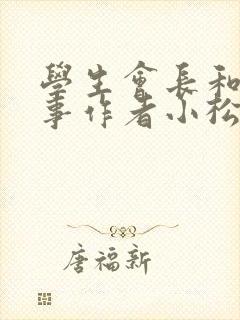 學生會長和
事作者小松
唐福新